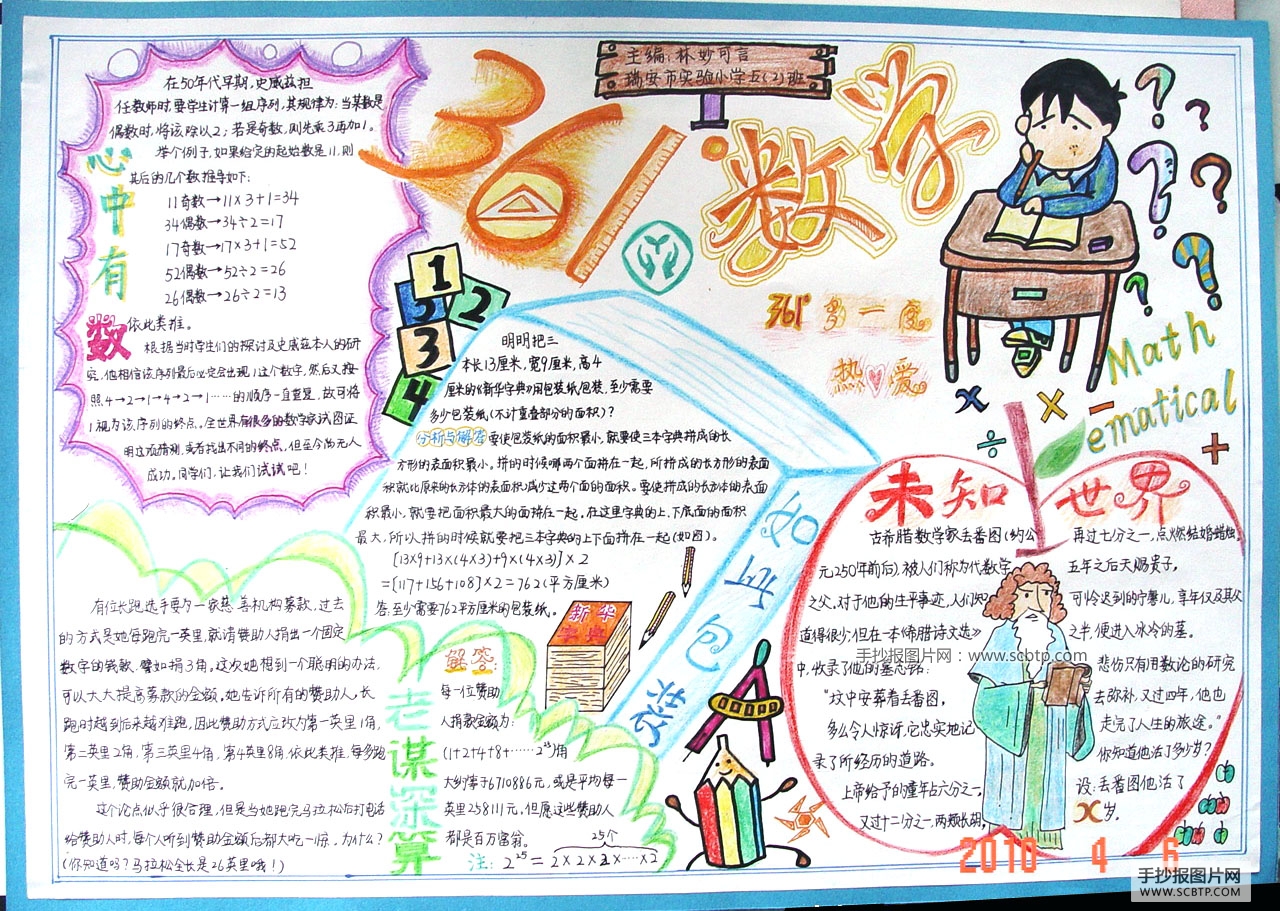 主编:林妙可言
瑞安市实验小学五(2)班
361°数学
361°多一度
热爱
Math
ematical
心中有数
在50年代早期,史威兹担
任教师时,要学生计算一组序列,其规律为:当某数是
偶数时,将该除以2;若是奇数,则先乘3再加1。
举个例子,如果给定的起始数是11,则
其后的几个数推导如下:
11奇数→11×3+1=34
34偶数→34÷2=17
17奇数→17×3+1=52
52偶数→52÷2=26
26偶数→26÷2=13
依此类推。
根据当时学生们的探讨及史威兹本人的研
究,他相信该序列最后必定会出现1这个数字,然后又按
照4→2→1→4→2→1……的顺序一直重复,故可将
1视为该序列的终点,全世界有很多的数学家试图证
明这项猜测,或者找出不同的终点,但至今尚无人
成功。同学们,让我们试试吧!
1
5
2
3
4
明明把三
本长13厘米,宽9厘米,高4
厘米的《新华字典》用包装纸包装,至少需要
多少包装纸(不计重叠部分的面积)?
分析与解答 要使包装纸的面积最小,就要使三本字典拼成的长
方形的表面积最小。拼的时候哪两个面拼在一起,所拼成的长方形的表面
积就比原来的长方体的表面积减少这两个面的面积。要使拼成的长方体的表面
积最小,就要把面积最大的面拼在一起。在这里字典的上、下底面的面积
最大,所以拼的时候就要把三本字典的上下面拼在一起(如图)。
[13×9+13×(4×3)+9×(4×3)]×2
=[117+156+108]×2=762(平方厘米)
答:至少需要762平方厘米的包装纸。
如此包装
新华
字典
老谋深算
有位长跑选手要为一家慈善机构募款,过去
的方式是她每跑完一英里,就请赞助人捐出一个固定
数字的钱款,譬如捐3角,这次她想到一个聪明的办法,
可以大大提高募款的金额,她告诉所有的赞助人,长
跑时越到后来越难跑,因此赞助方式应改为第一英里1角,
第二英里2角,第三英里4角,第4英里8角,依此类推,每多跑
完一英里,赞助金额就加倍。
这个论点似乎很合理,但是当她跑完马拉松后打电话
给赞助人时,每个人听到赞助金额后都大吃一惊,为什么?
(你知道吗?马拉松全长是26英里哦!)
解答:
每一位赞助
人捐款金额为:
(1+2+4+8+……2²⁵)角
大约等于6710886元,或是平均每一
英里258111元,但愿这些赞助人
都是百万富翁。
25个
注:2²⁵=2×2×2×……×2
未知世界
古希腊数学家丢番图(约公
元250年前后),被人们称为代数学
之父,对于他的生平事迹,人们知
道得很少;但在一本《希腊诗文选》
中,收录了他的墓志铭:
“坟中安葬着丢番图,
多么令人惊讶,它忠实地记
录了所经历的道路。
上帝给予的童年占六分之一,
又过十二分之一,两颊长胡,
再过七分之一,点燃结婚蜡烛。
五年之后天赐贵子,
可怜迟到的宁馨儿,享年仅及其父
之半,便进入冰冷的墓。
悲伤只有用数论的研究
去弥补,又过四年,他也
走完了人生的旅途。”
你知道他活了多少岁?
设:丢番图他活了
x岁。
手抄报图片网:www.scbtp.com
2010 4 6
手抄报图片网
WWW.SCBTP.COM